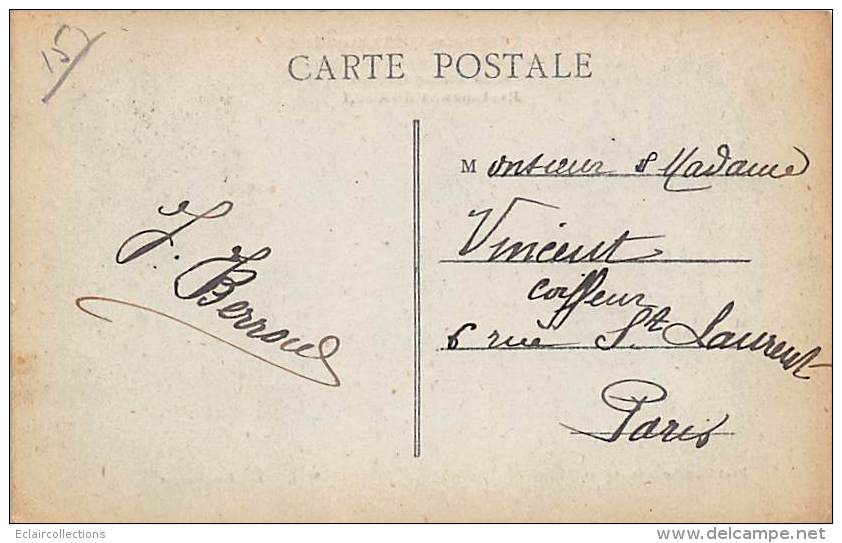 15
CARTE POSTALE
Monsieur & Madame
Vincent
coiffeur
6 rue St. Laurent
Paris
J. Berroud
Eclaircollections
www.delcampe.net